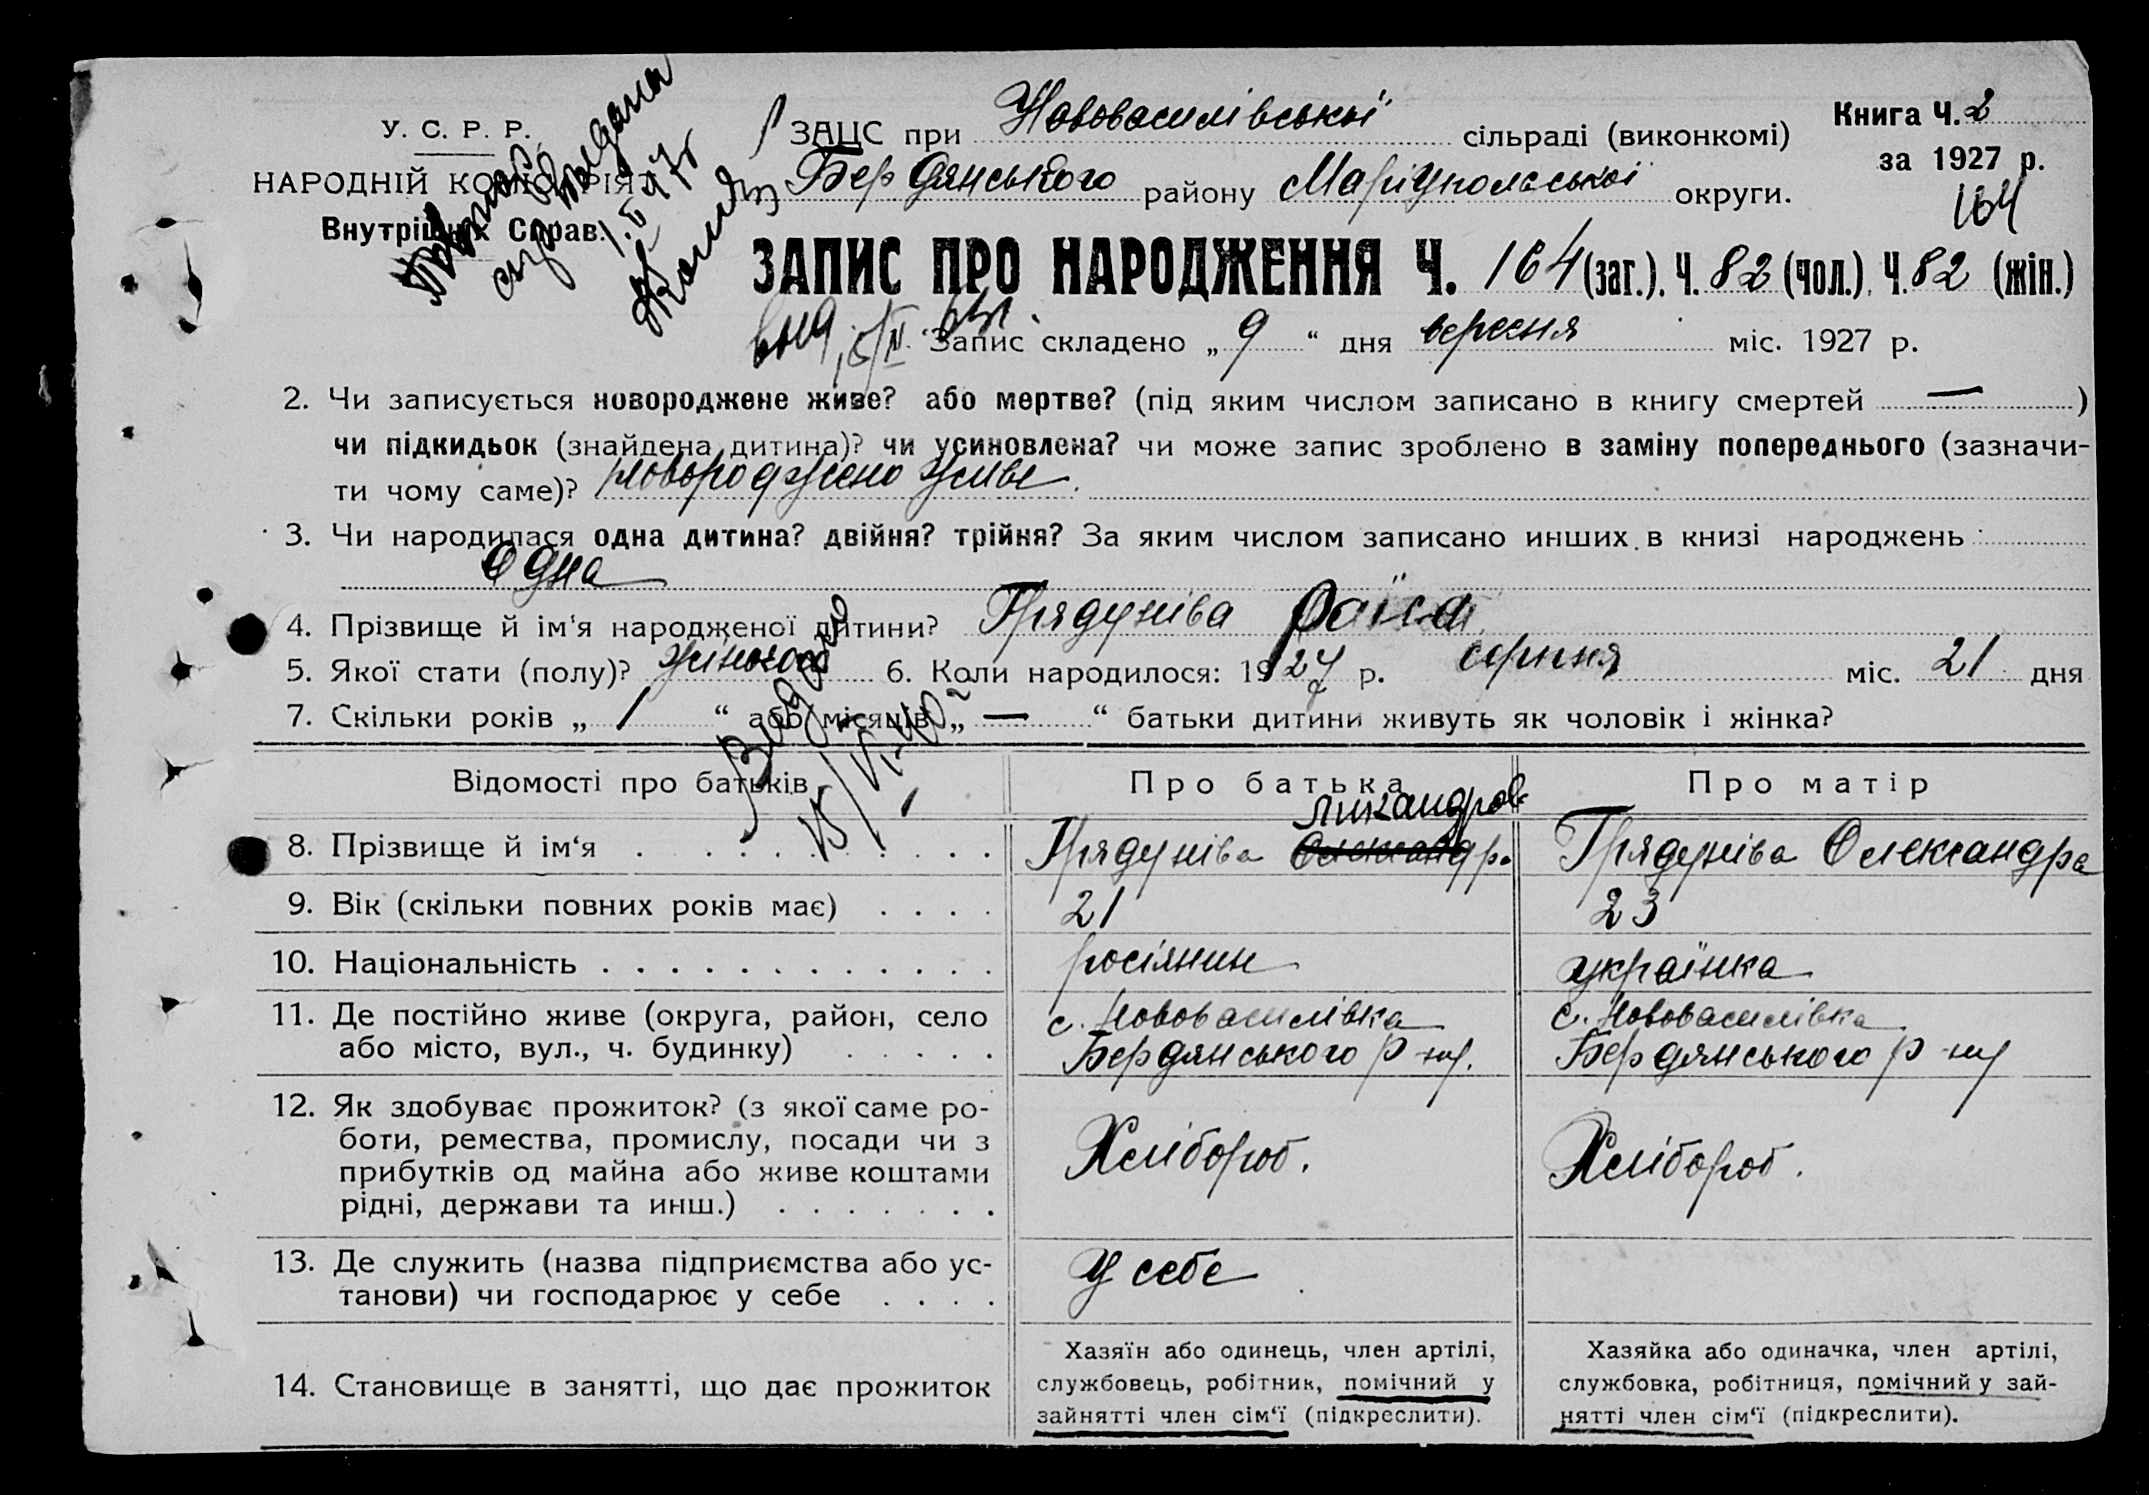 У. С. Р. Р.
НАРОДНІЙ КОМІСАРІЯТ
Внутрішніх Справ.
Повторно
выдана
47 г
ЗАЦС при Нововасилівської сільраді (виконкомі)
Бердянського району Маріупольської округи.
Книга Ч. 2
за 1927 р.
164
ЗАПИС ПРО НАРОДЖЕННЯ Ч. 164 (заг.). Ч. 82 (чол.). Ч. 82 (жін.)
Запис складено „ 9 “ дня вересня міс. 1927 р.
2. Чи записується новороджене живе? або мертве? (під яким числом записано в книгу смертей — )
чи підкидьок (знайдена дитина)? чи усиновлена? чи може запис зроблено в заміну попереднього (зазначи-
ти чому саме)? новороджено живе.
3. Чи народилася одна дитина? двійня? трійня? За яким числом записано инших в книзі народжень
одна
4. Прізвище й ім‘я народженої дитини? Грядуніва Раїса
5. Якої стати (полу)? жіночої 6. Коли народилося: 1927 р. серпня міс. 21 дня
7. Скільки років „ 1 “ або місяців „ — “ батьки дитини живуть як чоловік і жінка?
Видано
Відомості про батьків Про батька Про матір
Никандров
8. Прізвище й ім‘я Грядуніва Олександр. Грядуніва Олександра
9. Вік (скільки повних років має) 21 23
10. Національність росіянин українка
11. Де постійно живе (округа, район, село с. Нововасилівка с. Нововасилівка
або місто, вул., ч. будинку) Бердянського р-ну. Бердянського р-ну
12. Як здобуває прожиток? (з якої саме ро-
боти, ремества, промислу, посади чи з Хлібороб. Хлібороб.
прибутків од майна або живе коштами
рідні, держави та инш.)
13. Де служить (назва підприємства або ус- У себе
танови) чи господарює у себе
14. Становище в занятті, що дає прожиток
Хазяїн або одинець, член артілі,
службовець, робітник, помічний у
зайнятті член сім‘ї (підкреслити).
Хазяйка або одиначка, член артілі,
службовка, робітниця, помічний у зай-
нятті член сім‘ї (підкреслити).